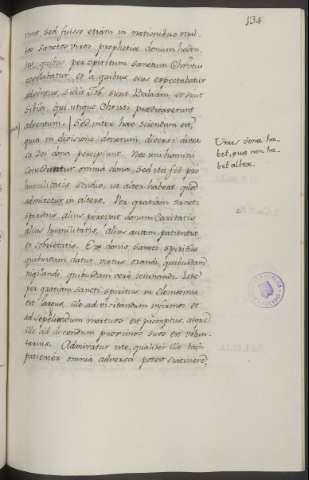 134
viros, sed fuisse etiam in nationibus mul-
tos sanctos viros prophetiæ donum haben-
tes, quibus per spiritum sanctum Christus
revelabatur, et a quibus eius expectabatur
adventus, sicut Iob, sicut Balaam, et sicut
Sibilla, qui utique Christi prædicaverunt
adventum. Sed inter hæc sciendum est,
quia in divisione donorum diversi diver-
sa Dei dona percipiunt. Non uni
omnia dona, sed ita fit pro
humilitatis studio, ut alter habeat quod
admiretur in altero. Per gratiam sancti
spiritus, alius percipit donum Caritatis
alius humilitatis, alius autem patientiæ
et sobrietatis. Ex dono sancti spiritus
quibusdam datur virtus orandi, quibusdam
vigilandi, quibusdam vero ieiunandi. Iste
per gratiam sancti spiritus in elemosina
est largus, ille ad visitandum infirmos et
ad sepeliendum mortuos est promptus, alter
ille ad docendum proximos suos est volun-
tarius. Admiratur iste, qualiter ille tam
patienter omnia adversa potest sustinere,
Unus dona ha-
bet, quæ non ha-
bet alter.